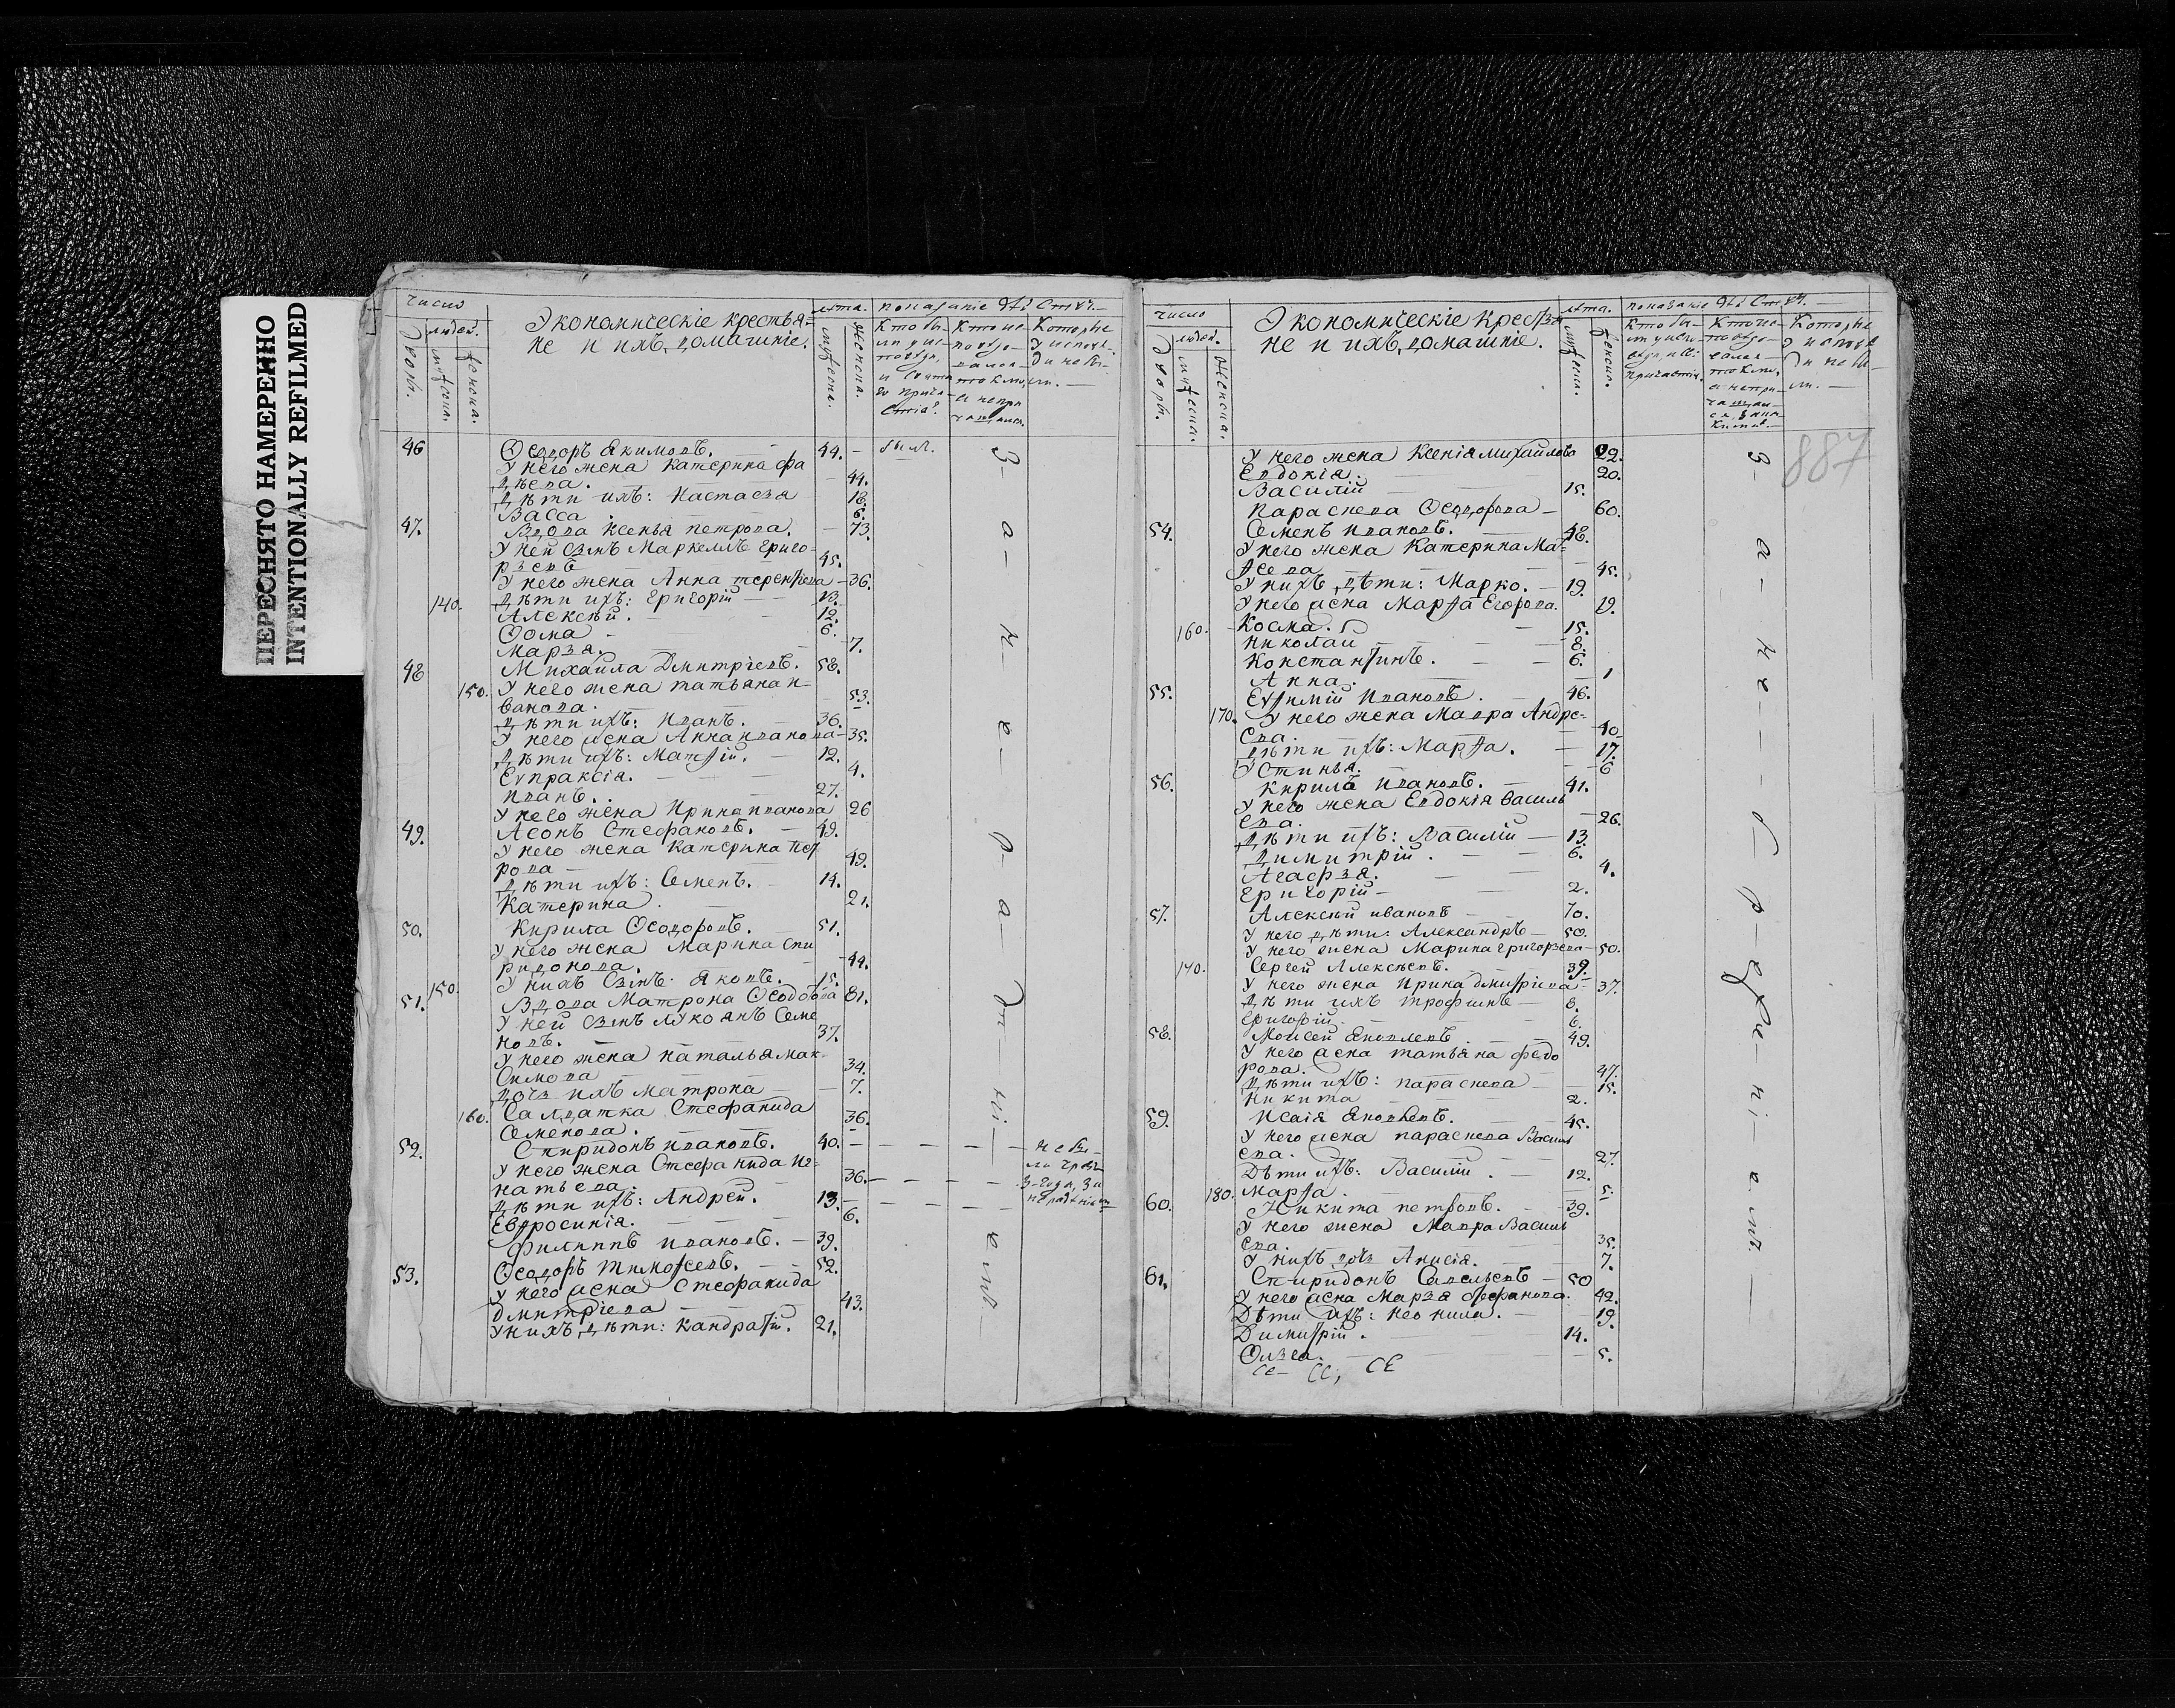 ПЕРЕСНЯТО НАМЕРЕННО
INTENTIONALLY REFILMED
число
людей.
Экономическіе крестья-
не и ихъ домашніе.
лѣта.
показаніе
46 Ѳеодоръ Якимовъ. 44. - былъ.
У него жена Катерина Фа
дѣева. 44.
Дѣти ихъ: Настасья 18.
Васса 6.
47. Вдова Ксенья Петрова. 73.
У ней сынъ Маркеллъ Григо-
рьевъ 45.
У него жена Анна Терентьева 36.
140. Дѣти ихъ: Григорій 13.
Алексѣй. 12.
Ѳома 6.
Марья. 7.
48 Михайла Дмитріевъ. 58.
150. У него жена Татьяна И-
ванова. 53.
Дѣти ихъ: Иванъ. 36.
У него жена Анна Иванова 35.
Дѣти ихъ: Матѳій. 12.
Еупраксіа. 4.
Иванъ. 27.
У него жена Ирина Иванова 26
49. Леонъ Стефановъ. 49.
У него жена Катерина Пет
рова 49.
Дѣти ихъ: Семенъ. 14.
Катерина. 21.
50. Кирила Ѳеодоровъ. 51.
У него жена Марина Спи
ридонова. 44.
150. У нихъ сынъ Яковъ. 15.
51. Вдова Матрона 81.
У ней сынъ Лукоянъ Семе
новъ. 37.
У него жена Наталья Мак-
симова 34.
Дочь ихъ Матрона 7.
160. Салдатка Стефанида
Семенова. 36.
52. Спиридонъ Ивановъ. 40.
У него жена Стефанида Иг-
натьева. 36.
Дѣти ихъ: Андрей. 13.
Евфросинія. 6.
Филиппъ Ивановъ. 39.
53. Ѳеодоръ Тимоѳеевъ. 52.
У него жена Стефанида
Дмитріева 43.
У нихъ дѣти: Кандратій. 21.
за нерадѣніемъ
число
людей.
Экономическіе крестья
не и ихъ домашніе.
лѣта.
показаніе
887
У него жена Ксенія Михайлова 22.
Евдокія. 20.
Василій 15.
Параскева Ѳеодорова 60.
54. Семенъ Ивановъ. 48.
У него жена Катерина Ма-
ѳеева 45.
У нихъ дѣти: Марко. 19.
У него жена Марѳа Егорова. 19.
160. Косма. 15.
Николай 8.
Константинъ. 6.
Анна. 1
55. Еуѳимій Ивановъ. 46.
170. У него жена Мавра Андре-
ева. 40
Дѣти ихъ: Марѳа. 17.
Устинья. 6
56. Кирилъ Ивановъ. 41.
У него жена Евдокія Василь
ева. 26.
Дѣти ихъ: Василій 13.
Димитрій. 6.
Агафья. 4.
Григорій 2.
57. Алексѣй Ивановъ 70.
У него дѣти: Александръ 50.
У него жена Марина Григорьева 50.
170. Сергей Алексѣевъ. 39.
У него жена Ирина Дмитріева 37.
Дѣти ихъ Трофимъ 8.
Григорій. 6.
58. Моисей Яковлевъ 49.
У него жена Татьяна Федо
рова. 47.
Дѣти ихъ: Параскева 15.
Никита 2.
59. Исаія Яковлевъ. 45.
У него жена Параскева Василь
ева. 27.
Дѣти ихъ: Василій. 12.
180. Марѳа. 5.
60. Никита Петровъ. 39.
У него жена Мавра Василь
ева. 35.
У нихъ дочь Анисіа. 7.
61. Спиридонъ Савельевъ 50
У него жена Марья 42.
Дѣти ихъ: Неонила. 19.
Димитрій. 14.
Ольга. 5.
за небреженіемъ.